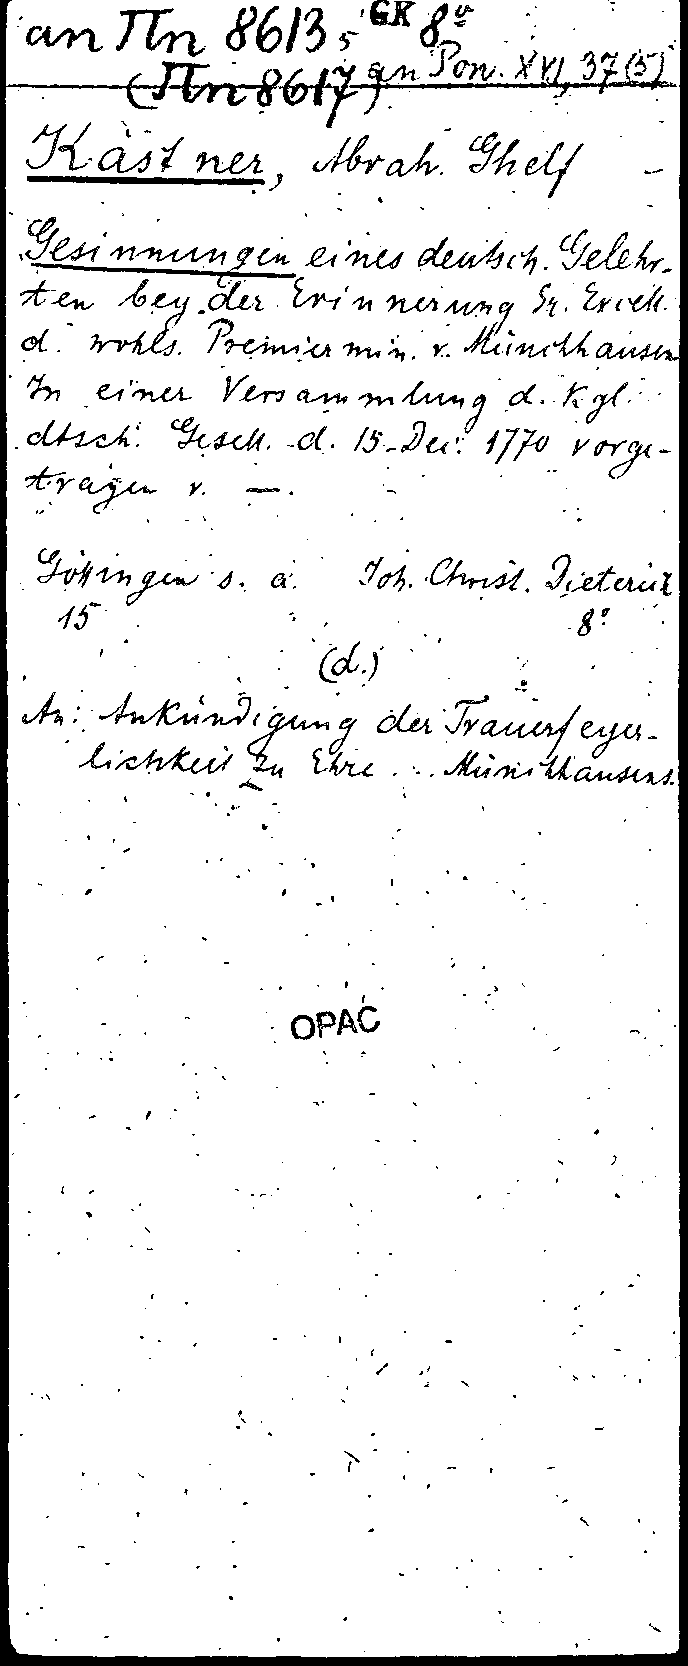 an Πn 8613, 5 GK 8º
(Πn 8617) an Pon. XVI, 37(5)
Kästner, Abrah. Ghelf –
Gesinnungen eines deutsch. Gelehr-
ten bey der Erinnerung Sr. Excell.
d. wohls. Premiermin. v. Münchhausen
In einer Versammlung d. Kgl.
dtsch. Gesell. d. 15. Dec. 1770 vorge-
tragen v. —.
Göttingen s. a. Joh. Christ. Dieterich
15 8º
(d.)
An: Ankündigung der Trauerfeyer-
lichkeit zu Ehre ... Münchhausens.
OPAC